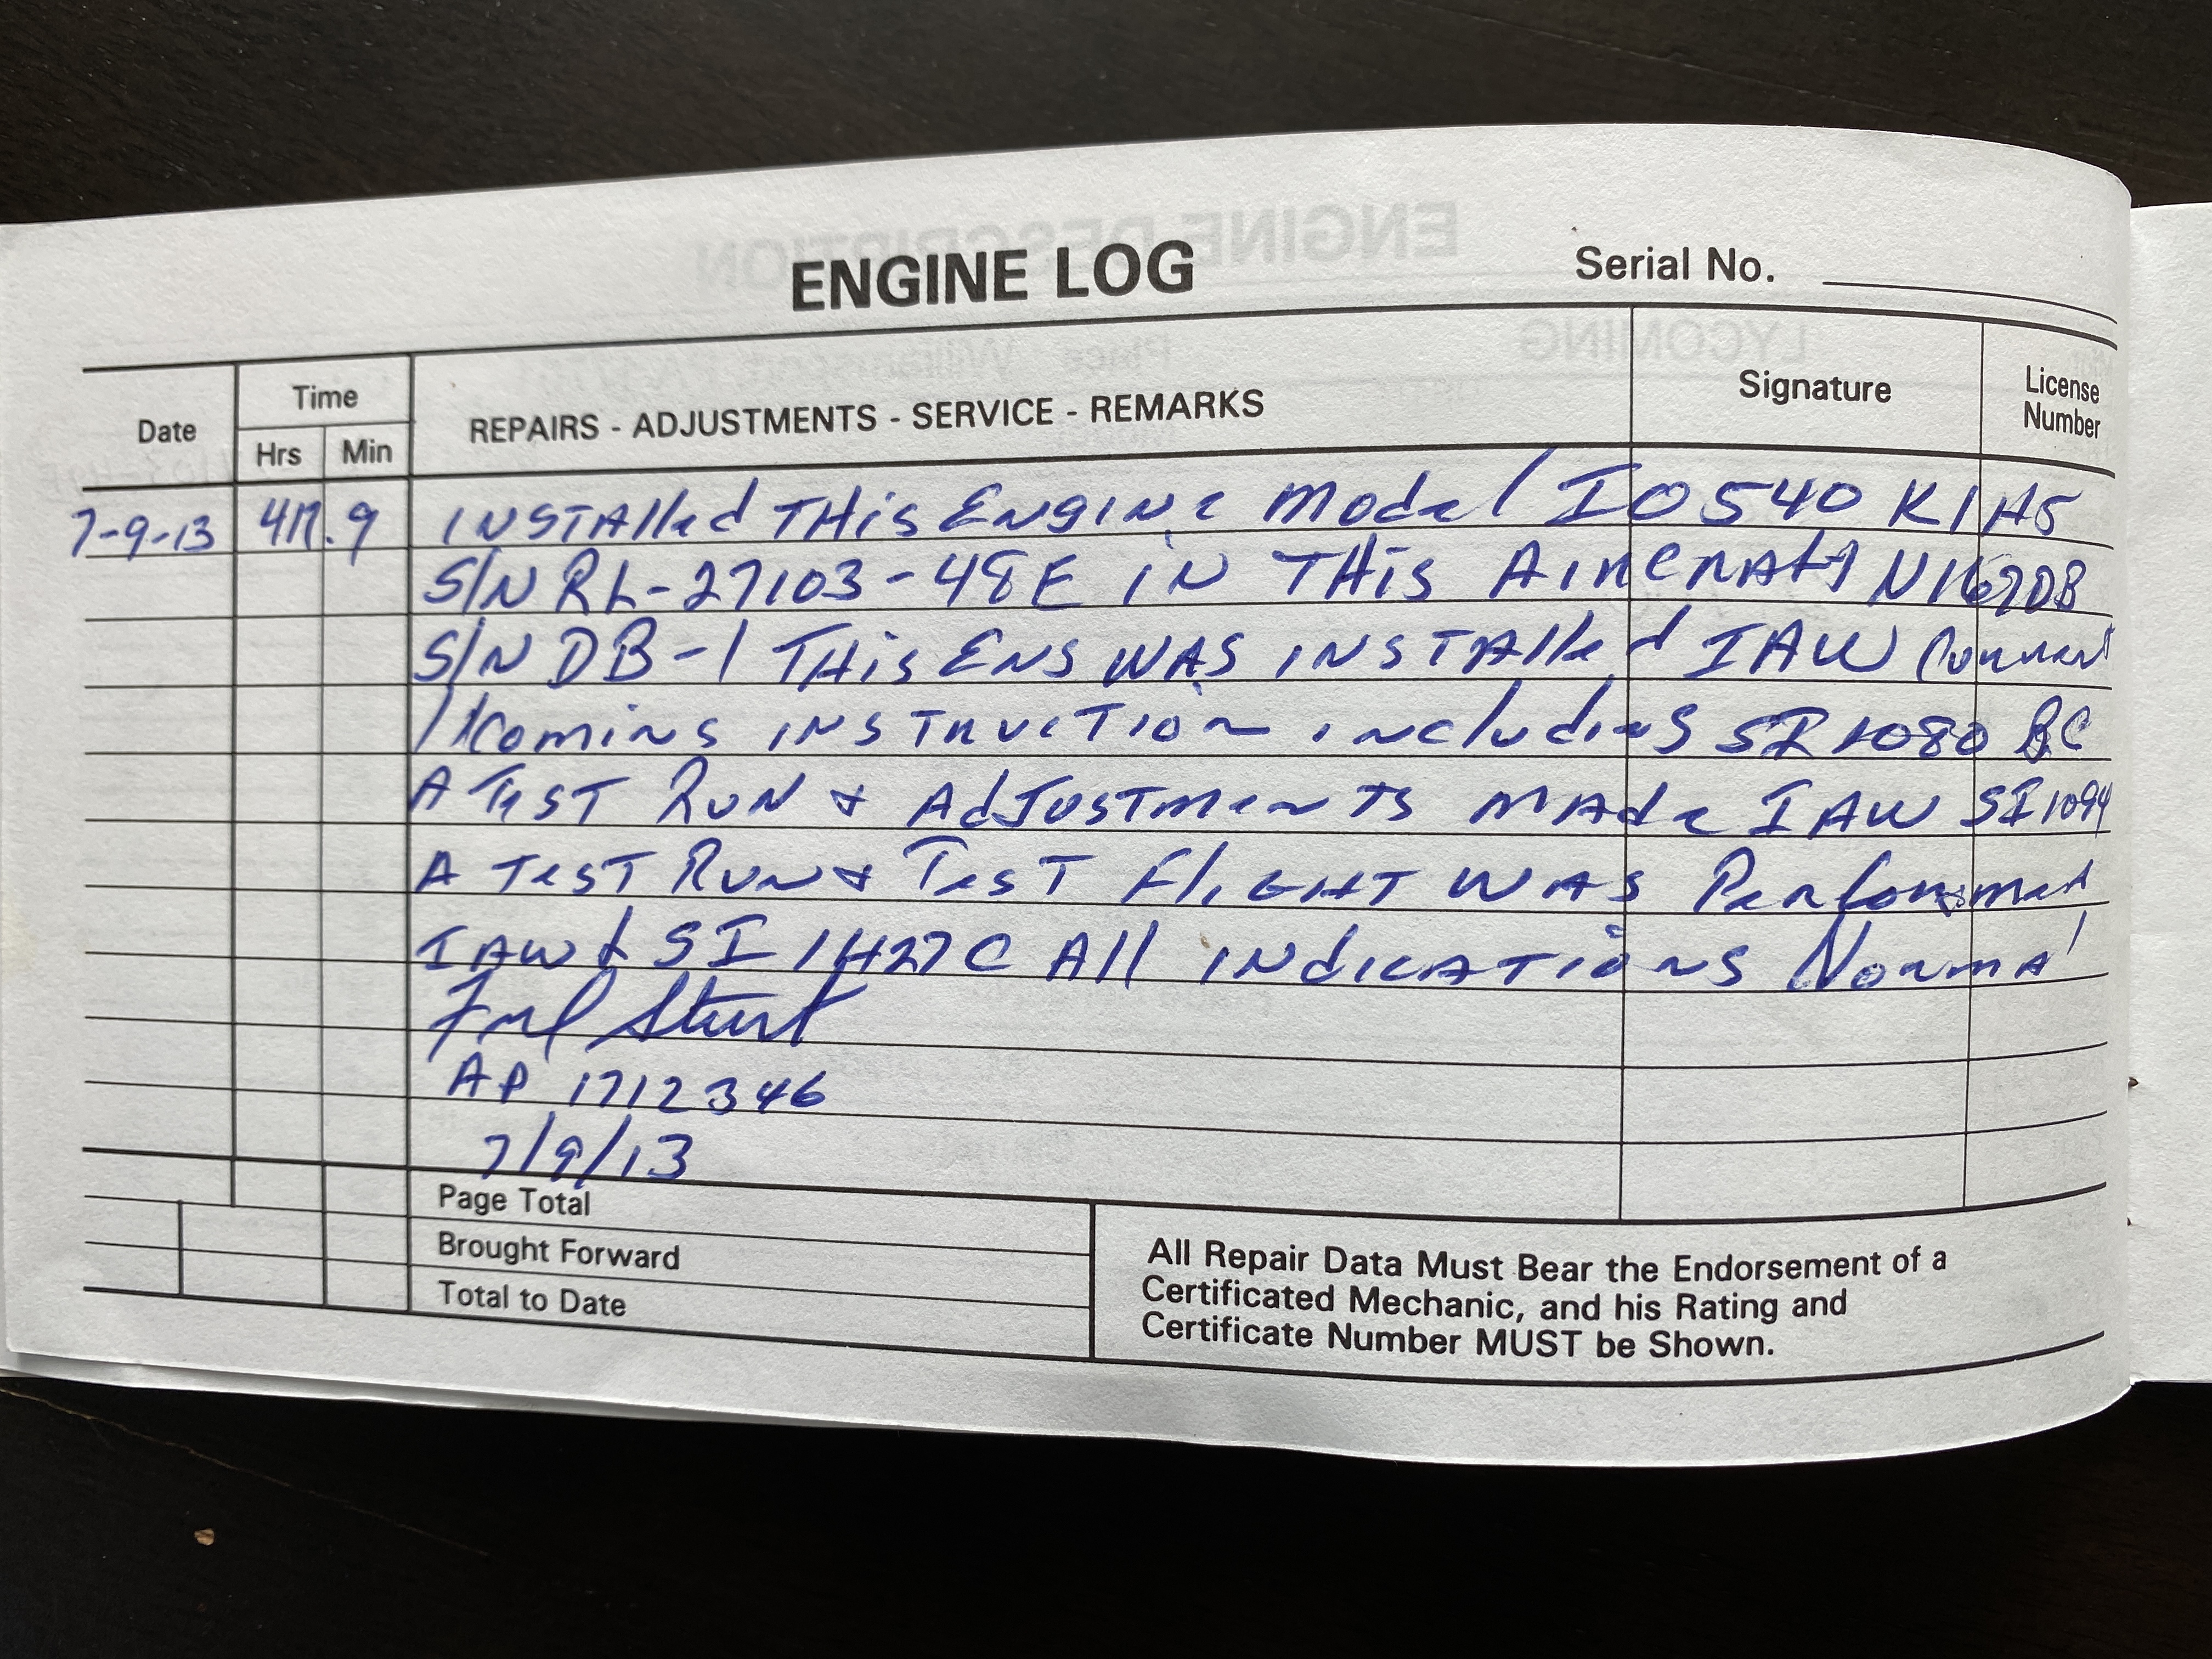 ENGINE LOG
Serial No.
Date
Time
Hrs Min
REPAIRS - ADJUSTMENTS - SERVICE - REMARKS
Signature
License
Number
7-9-13 411.9 INSTAlled THis ENgINe Model IO 540 K1H5
S/N RL-27103-48E iN THis AIRCRAft N1670B
S/N DB-1 THis ENG WAS INSTAlled IAW Current
lycoming INSTRUCTION including SI 1080 BC
A TesT RUN & AdJUSTments MAde IAW SI 1094
A TesT RUN & TesT FlIGHT WAS Performed
IAW SI 1427C All INdICATIONS Normal
AP 1712346
7/9/13
Page Total
Brought Forward
Total to Date
All Repair Data Must Bear the Endorsement of a
Certificated Mechanic, and his Rating and
Certificate Number MUST be Shown.